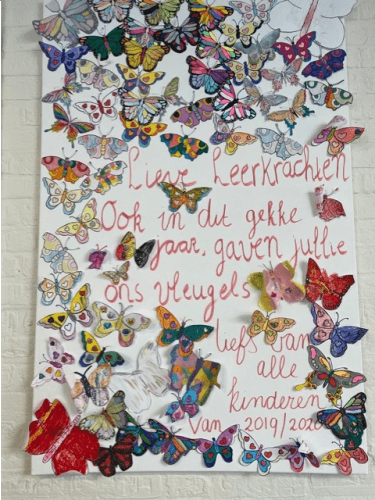 Lieve Leerkrachten
Ook in dit gekke
jaar, gaven jullie
ons vleugels
liefs van
alle
kinderen
van 2019/2020